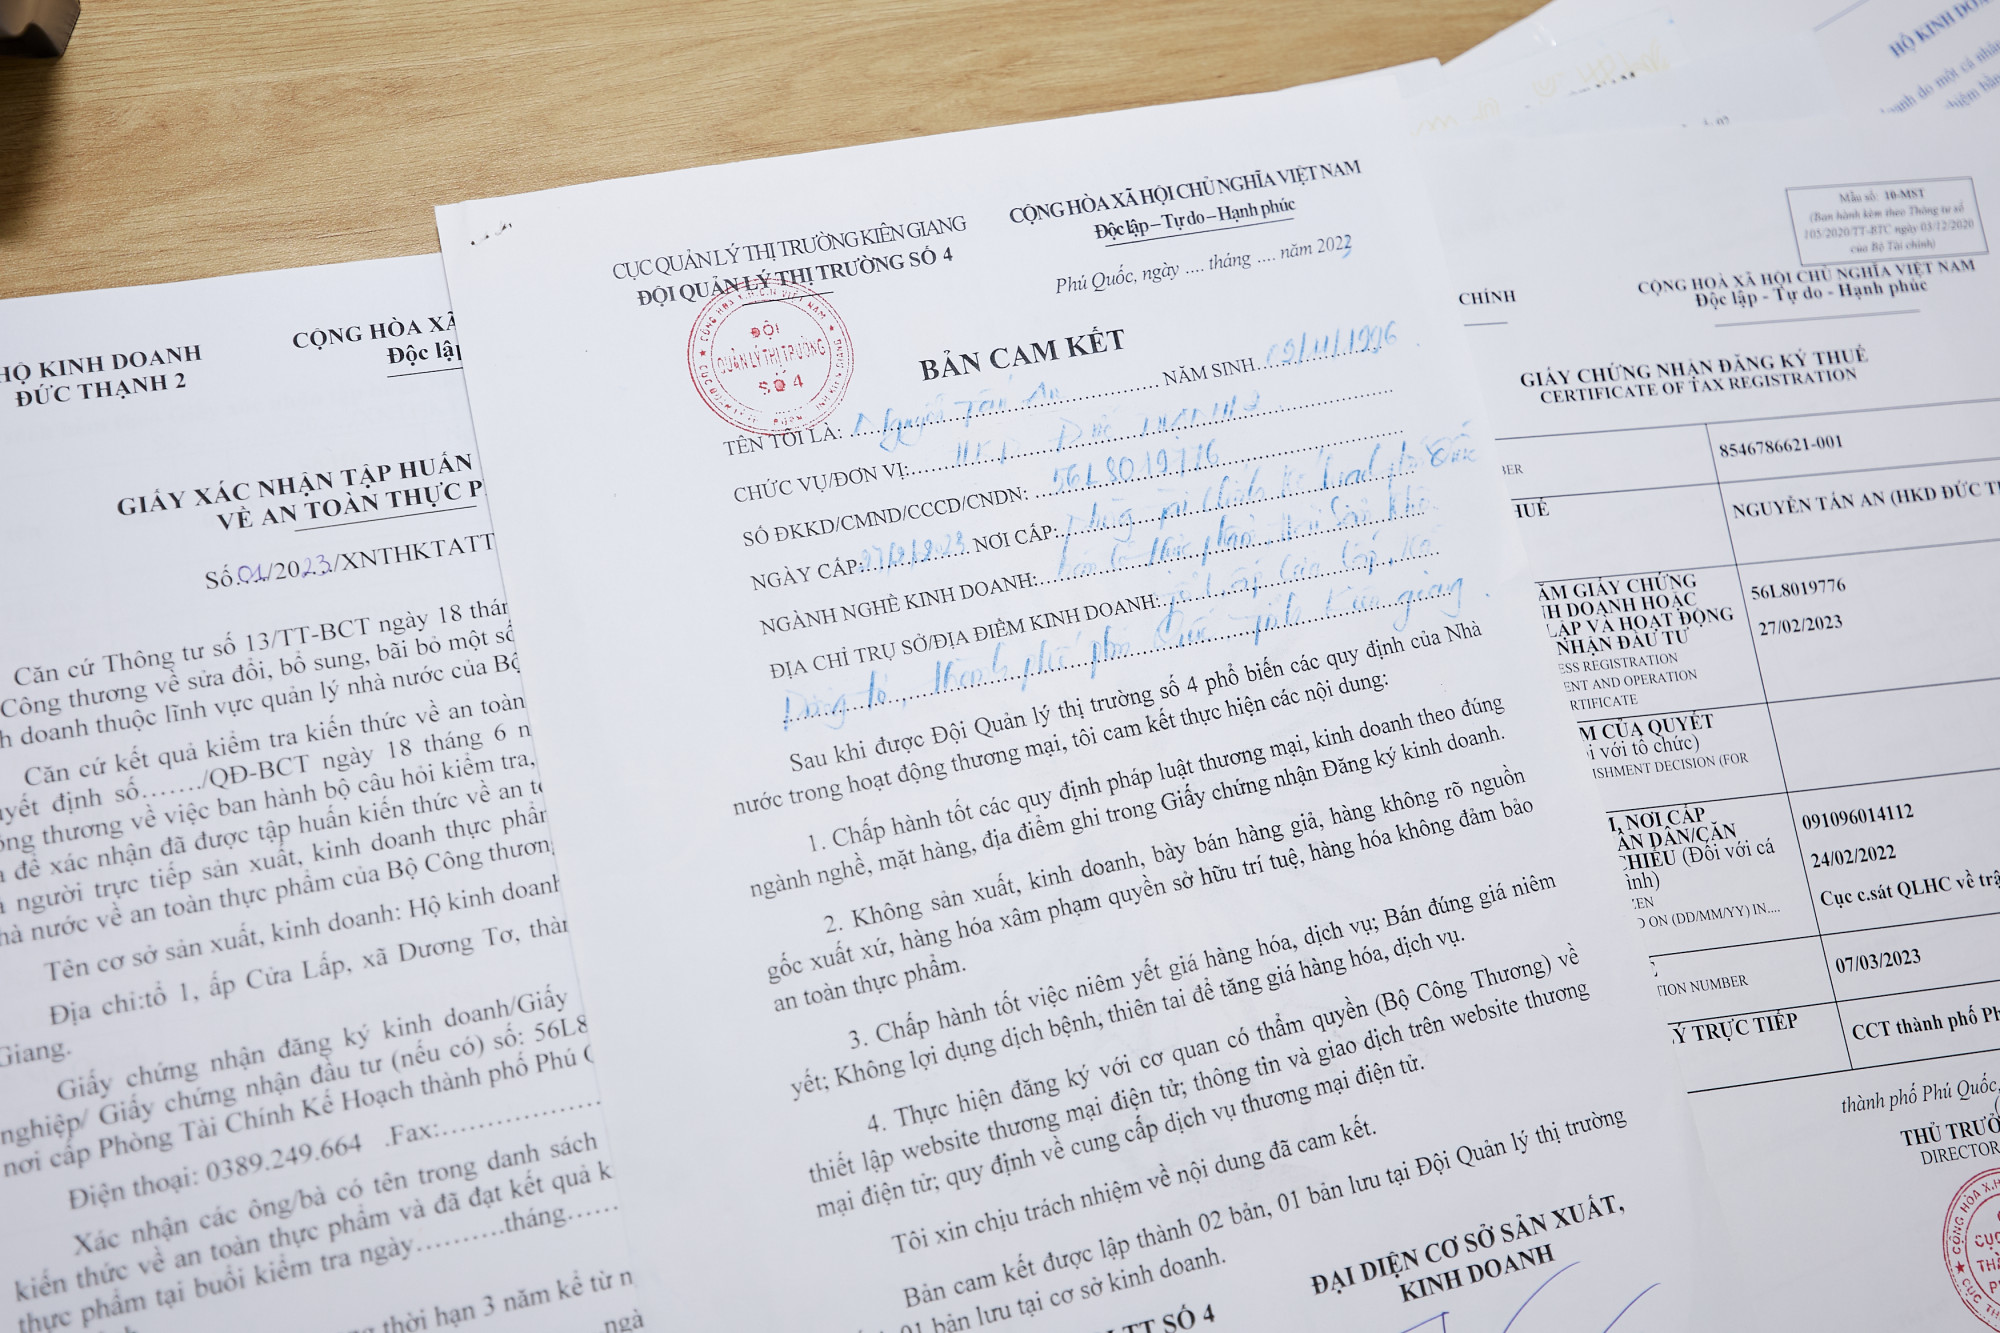 HỘ KINH DOANH
ĐỨC THẠNH 2
CỘNG HÒA XÃ
Độc lập
GIẤY XÁC NHẬN TẬP HUẤN
VỀ AN TOÀN THỰC P
Số:01/2023/XNTHKTATT
Căn cứ Thông tư số 13/TT-BCT ngày 18 thán
Công thương về sửa đổi, bổ sung, bãi bỏ một số
h doanh thuộc lĩnh vực quản lý nhà nước của Bộ
Căn cứ kết quả kiểm tra kiến thức về an toàn
uyết định số......./QĐ-BCT ngày 18 tháng 6 n
ông thương về việc ban hành bộ câu hỏi kiểm tra,
để xác nhận đã được tập huấn kiến thức về an to
người trực tiếp sản xuất, kinh doanh thực phẩm
hà nước về an toàn thực phẩm của Bộ Công thương
Tên cơ sở sản xuất, kinh doanh: Hộ kinh doanh
Địa chỉ:tổ 1, ấp Cửa Lấp, xã Dương Tơ, thàn
Giang.
Giấy chứng nhận đăng ký kinh doanh/Giấy
nghiệp/ Giấy chứng nhận đầu tư (nếu có) số: 56L8
nơi cấp Phòng Tài Chính Kế Hoạch thành phố Phú Q
Điện thoại: 0389.249.664 .Fax:....................
Xác nhận các ông/bà có tên trong danh sách
kiến thức về an toàn thực phẩm và đã đạt kết quả k
thực phẩm tại buổi kiểm tra ngày..........tháng......
thời hạn 3 năm kể từ n
ngà
CỤC QUẢN LÝ THỊ TRƯỜNG KIÊN GIANG
ĐỘI QUẢN LÝ THỊ TRƯỜNG SỐ 4
CỘNG HÒA XÃ HỘI CHỦ NGHĨA VIỆT NAM
Độc lập – Tự do – Hạnh phúc
Phú Quốc, ngày .... tháng .... năm 2023
ĐỘI
QUẢN LÝ THỊ TRƯỜNG
SỐ 4
BẢN CAM KẾT
TÊN TÔI LÀ: Nguyễn Tấn An NĂM SINH 09/11/1996
CHỨC VỤ/ĐƠN VỊ: HKD Đức Thạnh 2
SỐ ĐKKD/CMND/CCCD/CNDN: 56L8019776
NGÀY CẤP: 27/2/2023 NƠI CẤP: phòng tài chính kế hoạch phú Quốc
NGÀNH NGHỀ KINH DOANH: bán lẻ thực phẩm
ĐỊA CHỈ TRỤ SỞ/ĐỊA ĐIỂM KINH DOANH: tổ 1, ấp Cửa Lấp, xã
Dương tơ, thành phố phú Quốc tỉnh Kiên giang.
Sau khi được Đội Quản lý thị trường số 4 phổ biến các quy định của Nhà
nước trong hoạt động thương mại, tôi cam kết thực hiện các nội dung:
1. Chấp hành tốt các quy định pháp luật thương mại, kinh doanh theo đúng
ngành nghề, mặt hàng, địa điểm ghi trong Giấy chứng nhận Đăng ký kinh doanh.
2. Không sản xuất, kinh doanh, bày bán hàng giả, hàng không rõ nguồn
gốc xuất xứ, hàng hóa xâm phạm quyền sở hữu trí tuệ, hàng hóa không đảm bảo
an toàn thực phẩm.
3. Chấp hành tốt việc niêm yết giá hàng hóa, dịch vụ; Bán đúng giá niêm
yết; Không lợi dụng dịch bệnh, thiên tai để tăng giá hàng hóa, dịch vụ.
4. Thực hiện đăng ký với cơ quan có thẩm quyền (Bộ Công Thương) về
thiết lập website thương mại điện tử; thông tin và giao dịch trên website thương
mại điện tử; quy định về cung cấp dịch vụ thương mại điện tử.
Tôi xin chịu trách nhiệm về nội dung đã cam kết.
Bản cam kết được lập thành 02 bản, 01 bản lưu tại Đội Quản lý thị trường
01 bản lưu tại cơ sở kinh doanh.
LTT SỐ 4
ĐẠI DIỆN CƠ SỞ SẢN XUẤT,
KINH DOANH
HỘ KINH DOA
Mẫu số: 10-MST
(Ban hành kèm theo Thông tư số
105/2020/TT-BTC ngày 03/12/2020
của Bộ Tài chính)
CHÍNH
CỘNG HOÀ XÃ HỘI CHỦ NGHĨA VIỆT NAM
Độc lập - Tự do - Hạnh phúc
GIẤY CHỨNG NHẬN ĐĂNG KÝ THUẾ
CERTIFICATE OF TAX REGISTRATION
BER
8546786621-001
HUẾ
NGUYỄN TẤN AN (HKD ĐỨC TH
ĂM GIẤY CHỨNG
NH DOANH HOẶC
LẬP VÀ HOẠT ĐỘNG
NHẬN ĐẦU TƯ
ESS REGISTRATION
ENT AND OPERATION
RTIFICATE
56L8019776
27/02/2023
M CỦA QUYẾT
i với tổ chức)
ISHMENT DECISION (FOR
I, NƠI CẤP
ÂN DÂN/CĂN
CHIẾU (Đối với cá
ình)
EN
D ON (DD/MM/YY) IN....
091096014112
24/02/2022
Cục c.sát QLHC về trậ
TION NUMBER
07/03/2023
Ý TRỰC TIẾP
CCT thành phố Ph
thành phố Phú Quốc,
THỦ TRƯỞ
DIRECTOR